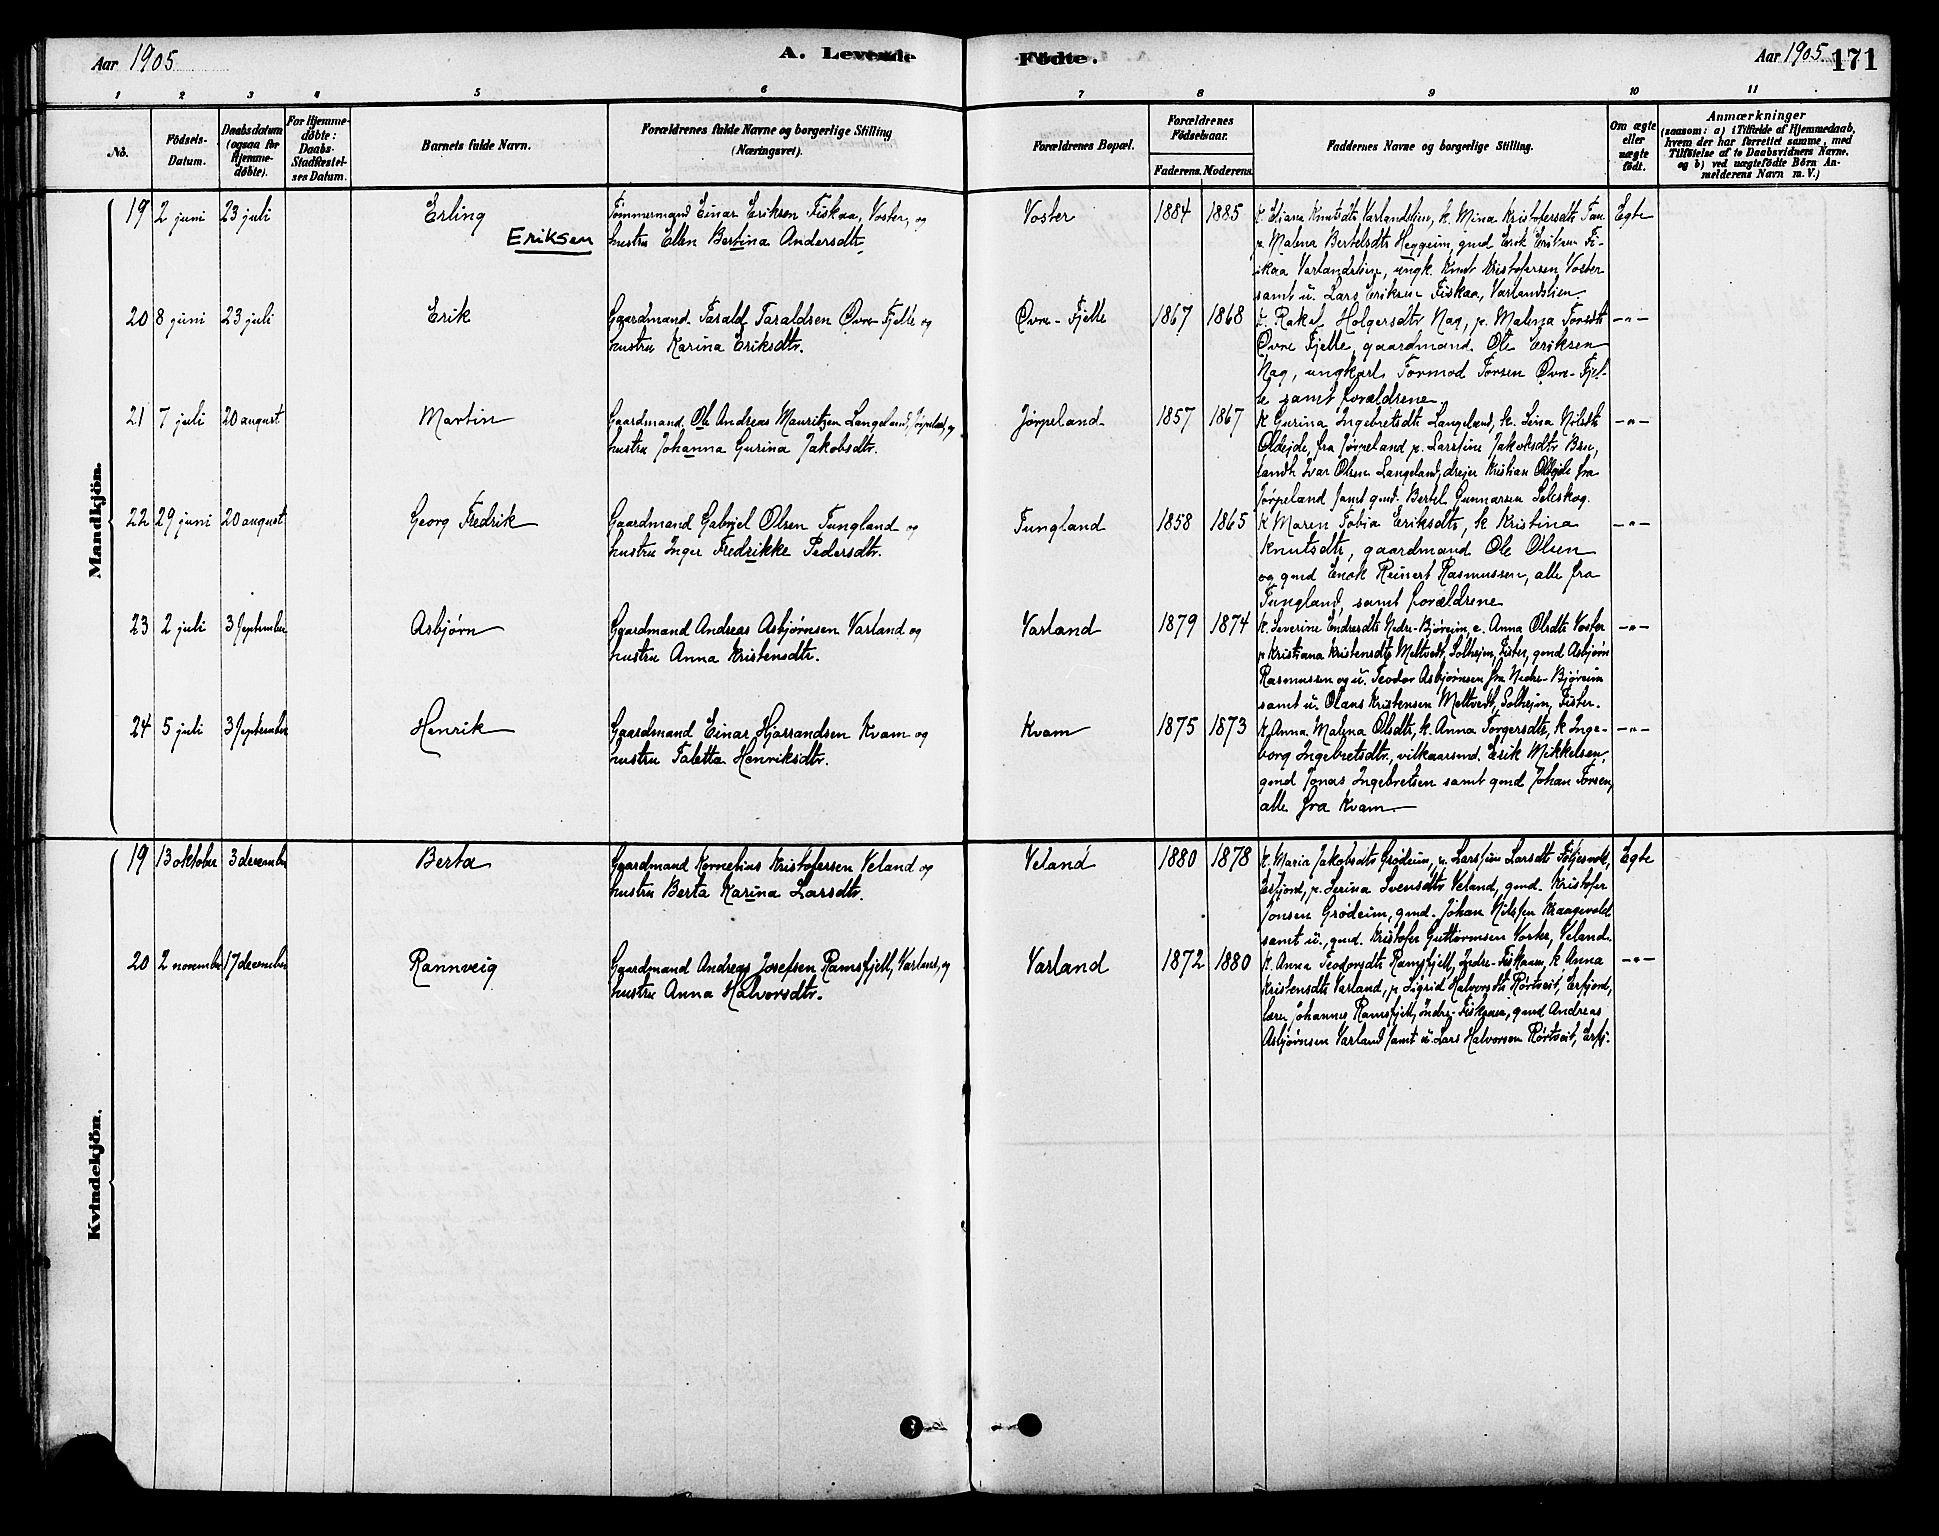 Aar 1905
A. Levende Fødte.
Aar 1905 171
1 2 3 4 5 6 7 8 9 10 11
No.
Fødsels-Datum.
Daabsdatum (ogsaa for Hjemme-døbte).
For Hjemme-døbte: Daabs-Stadfæstel-ses Datum.
Barnets fulde Navn.
Forældrenes fulde Navne og borgerlige Stilling (Næringsvei).
Forældrenes Bopæl.
Forældrenes Fødselsaar.
Faderens. Moderens.
Faddernes Navne og borgerlige Stilling.
Om ægte eller uægte født.
Anmærkninger
(saasom: a) i Tilfælde af Hjemmedaab, hvem der har forrettet samme, med Tilføielse af to Daabsvidners Navne. og b) ved uægtefødte Børn An-melderens Navn m. V.)
Mandkjön.
19 2 juni 23 juli Erling Eriksen
Tømmermand Einar Eriksen Fiskaa, Voster, og
hustru Ellen Bertina Andersdtr.
Voster 1884 1885
k. Eliana Knutsdtr Varlandslien, k. Mina Kristofersdtr Tau
p. Malena Bertelsdtr Heggeim, gmd Erik Eriksen Fi-
skaa Varlandslien, ungk. Knut Kristofersen Voster
samt u. Lars Eriksen Fiskaa, Varlandslien.
Egte
20 8 juni 23 juli Erik
Gaardmand Tarald Taraldsen Øvre-Fjelle og
hustru Karina Eriksdtr.
Øvre-Fjelle 1867 1868
k. Rakel Holgersdtr Nag, p. Malena Torsdtr
Øvre Fjelle, gaardmand Ole Eriksen
Nag, ungkarl Tormod Torsen Øvre-Fjel-
le samt forældrene
-"-
21 7 juli 20 august Martin
Gaardmand Ole Andreas Mauritzen Langeland, Jørpeland, og
hustru Johanna Gurina Jakobsdtr.
Jørpeland 1857 1867
k Gurina Ingebretsdtr Langeland, k. Lina Nilsdtr
Oldejde, fra Jørpeland p. Larsine Jakobsdtr
Ivar Olsen Langeland, drejer Kristian Oldejde fra
Jørpeland samt gmd. Bertel Gunnarsen Seleskog.
-"-
22 29 juni 20 august Georg Fredrik
Gaardmand Gabriel Olsen Tungland og
hustru Inger Fredrikke Pedersdtr.
Tungland 1858 1865
k Maren Tobia Eriksdtr, k Kristina
Knutsdtr, gaardmand Ole Olsen
og gmd Enok Reinert Rasmussen, alle fra
Tungland, samt forældrene
-"-
23 2 juli 3 september Asbjørn
Gaardmand Andreas Asbjørnsen Varland og
hustru Anna Kristensdtr.
Varland 1879 1874
k. Severine Endresdtr Nedre-Bjøreim, e. Anna Olsdtr Voster
p Kristiana Kristensdtr Meltvedt, Solheim, Fister, gmd Asbjørn
Rasmussen og u. Teodor Asbjørnsen fra Nedre-Bjøreim
samt u. Olaus Kristensen Meltvedt, Solheim, Fister.
-"-
24 5 juli 3 september Henrik
Gaardmand Einar Hjarrandsen Kvam og
hustru Taletta Henriksdtr.
Kvam 1875 1873
k Anna Malena Olsdtr, k. Anna Torgersdtr, k Inge-
borg Ingebretsdtr., vilkaarsmd. Erik Mikkelsen,
gmd Jonas Ingebretsen samt gmd Johan Torsen,
alle fra Kvam
-"-
Kvindekjön.
19 13 oktober 3 december Berta
Gaardmand Kornelius Kristofersen Veland og
hustru Berta Karina Larsdtr.
Veland 1880 1878
k. Maria Jakobsdtr Grødeim, p. Larsine Larsdtr
Erfjord, p. Serina Svensdtr Veland, gmd. Kristofer
Jonsen Grødeim, gmd. Johan Nilssen
samt u., gmd. Kristofer Guttormsen Veland.
Egte
20 2 november 17 december Rannveig
Gaardmand Andreas Josefsen Ramsfjell, Varland, og
hustru Anna Halvorsdtr.
Varland 1872 1880
k. Anna Teodorsdtr Ramsfjell, Indre-Fiskaaen, k Anna
Kristensdtr Varland, p Sigrid Halvorsdtr Rørtveit, Erfjord,
lærer Johannes Ramsfjell, Indre-Fiskaaen, gmd Andreas
Asbjørnsen Varland samt u. Lars Halvorsen Rørtveit, Erfj.
-"-